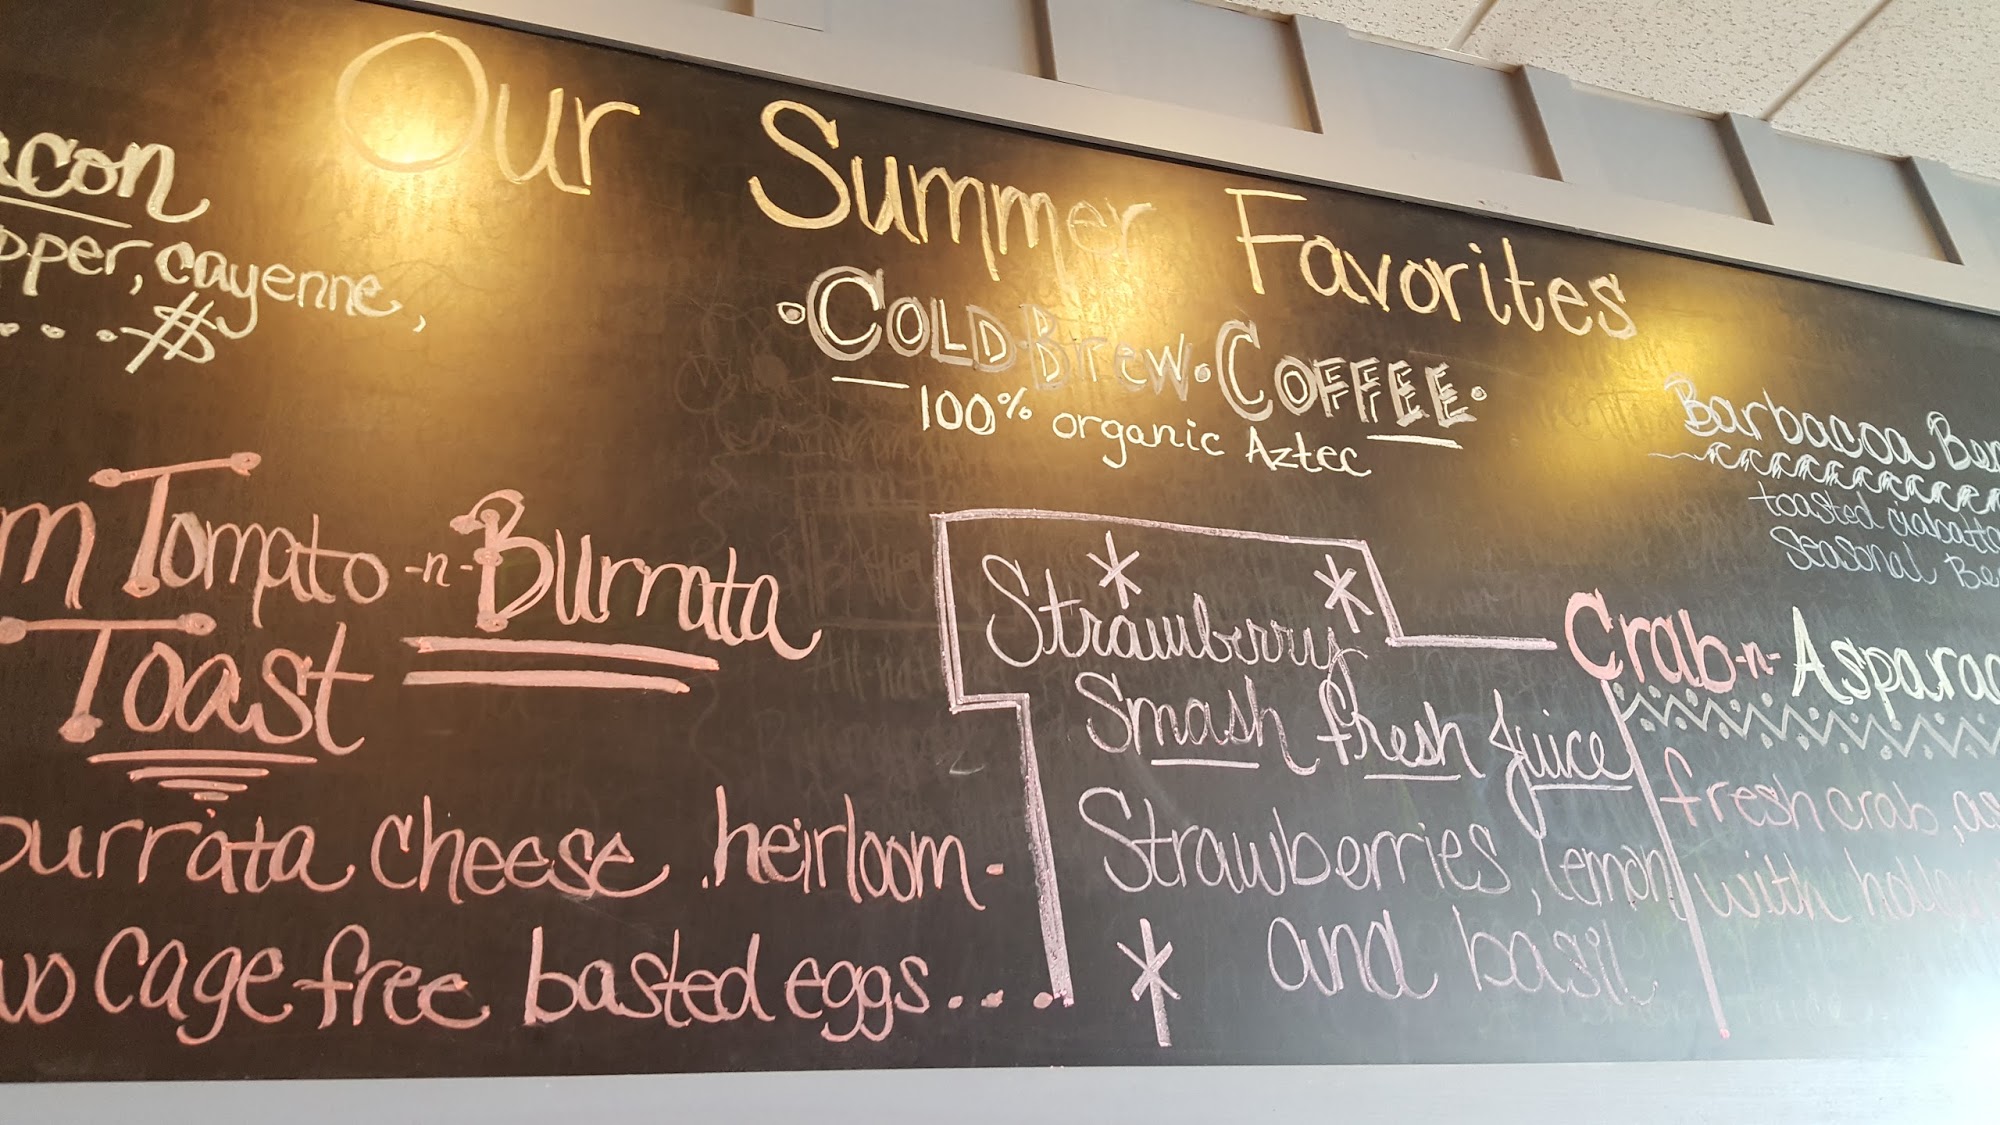 Our Summer Favorites
acon
pper, cayenne,
....$
• COLD • Brew • COFFEE •
100% organic Aztec
m Tomato -n- Burrata
Toast
burrata cheese, heirloom-
wo cage free basted eggs....
Strawberry
Smash fresh Juice
Strawberries, lemon
and basil
Barbacoa Ben
toasted ciabatta
Seasonal Be
Crab -n- Asparag
fresh crab, as
with